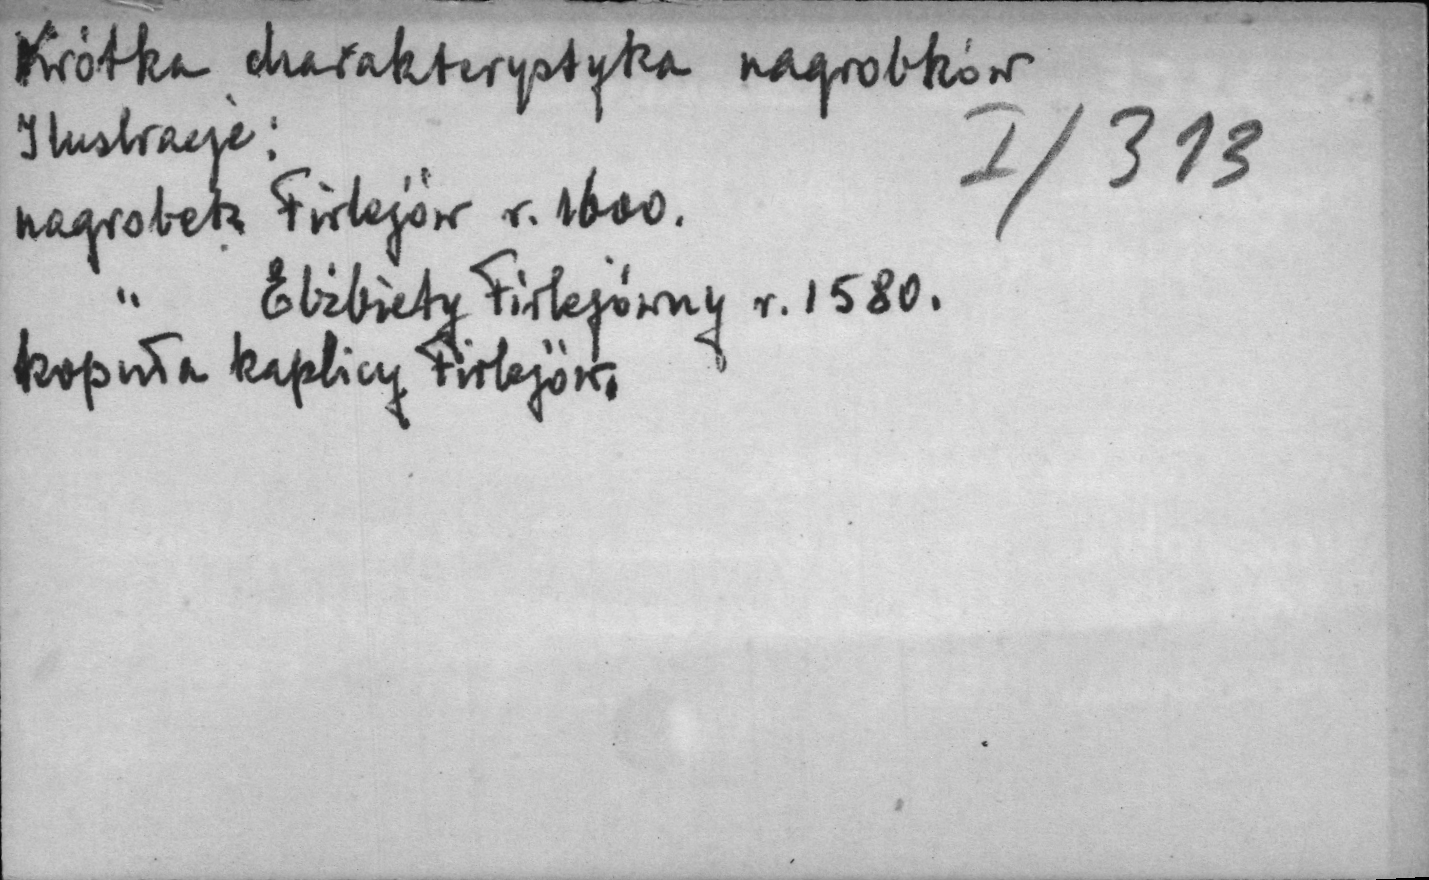 Krótka charakterystyka nagrobków
Ilustracje:
I/313
nagrobek Firlejów r. 1600.
" Elżbiety Firlejówny r. 1580.
kopuła kaplicy Firlejów.